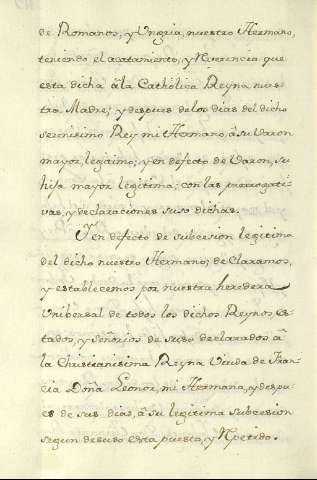 de Romanos, y Ungria, nuestro Hermano,
teniendo el acatamento, y Reverencia que
esta dicha â la Catholica Reyna nues
tra Madre; y despues delos dias del dicho
serenisimo Rey mi Hermano, â su Varon
mayor, legitimo; y en defecto de Varon, su
hija mayor legitima; con las prerrogati-
vas, y declaraciones suso dichas.
Y en defecto de subcesion legitima
del dicho nuestro Hermano; de Claramos,
y establecemos por nuestra heredera
Unibersal de todos los dichos Reynos, Es-
tados, y señorios de suso declarados â
la Christianisima Reyna Viuda de Fran-
cia Doña Leonor, mi Hermana, y despu-
es de sus dias, â su legitima subcesion
segun desuso esta puesto, y Repetido.